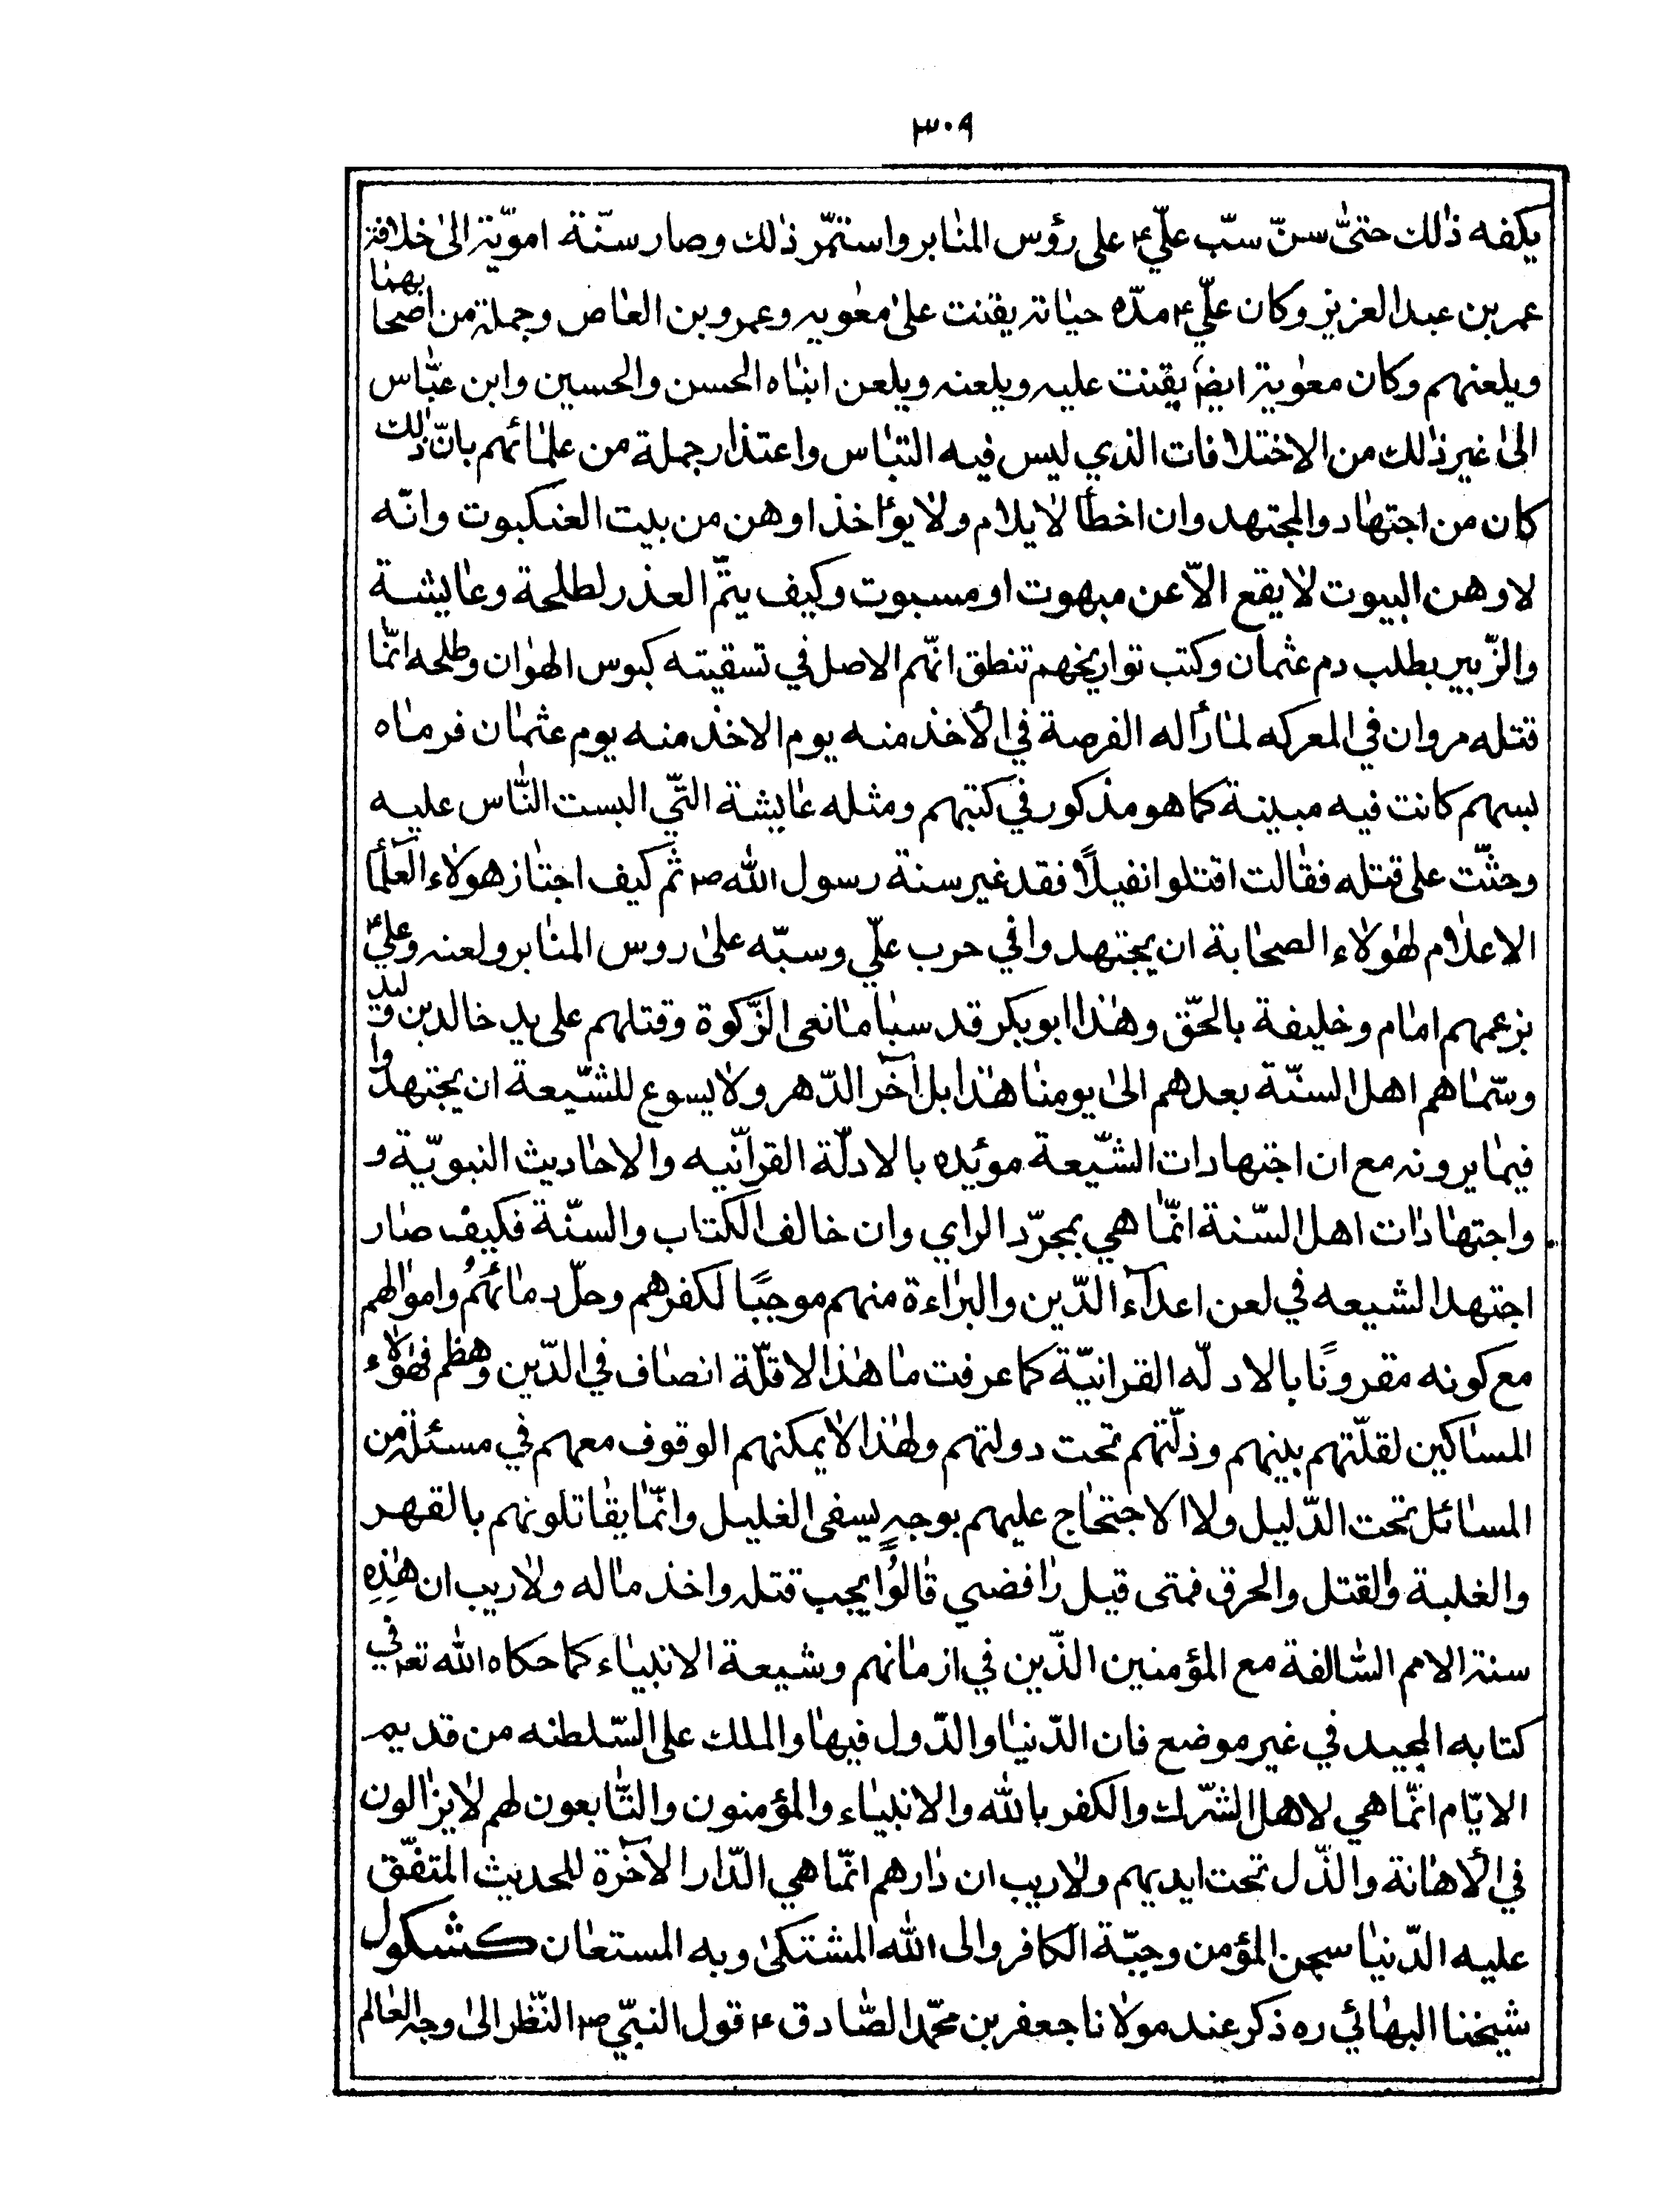 ٣٠٩
يكفه ذٰلك حتىّٰ سنّ سبّ علّي ع على رؤس المنٰابر واستمّر ذٰلك وصار سنّة امويّة الىٰ خلافة
عمر بن عبد العزيز وكان علّي ع مدّه حيٰاته يقنت علىٰ معٰويه وعمرو بن العٰاص وجملة من اصحابهنا
ويلعنهم وكان معٰوية ايضٕ يقنت عليه ويلعنه ويلعن ابنٰاه الحسن والحسين وابن عبّٰاس
الىٰ غير ذٰلك من الاختلافات الذي ليس فيه التبٰاس واعتذار جملة من علمٰائهم بانّ ذٰلك
كان من اجتهٰاد والمجتهد وان اخطأ لٰا يلام ولٰا يؤاخذ اوهن من بيت العنكبوت وانّه
لاوهن البيوت لٰا يقع الاّ عن مبهوت او مسبوت وكيف يتمّ العذر لطلحة وعٰايشة
والزّبير بطلب دم عثمان وكتب تواريخهم تنطق انّهم الاصل في تسقيته كبوس الهوٰان وطلحه انّمٰا
قتله مروان في المعركه لمٰا رأ اله الفرصة في الأخذ منه يوم الاخذ منه يوم عثمٰان فرمٰاه
بسهم كانت فيه مبينة كما هو مذكور في كتبهم ومثله عٰايشة التّي البست النّٰاس عليه
وحثّت على قتله فقٰالت اقتلوا نفيلًا فقد غير سنة رسول الله ص ثم كيف اجتٰاز هولٰاء العلمٰا
الاعلٰام لهٰولٰاء الصحٰابة ان يجتهدوا في حرب علّي وسبّه علىٰ روس المنٰابر ولعنه وعليّ ع
بزعمهم امٰام وخليفة بالحّق وهٰذا ابو بكر قد سبٰا مٰانعى الزّكوة وقتلهم على يد خالد بن وليد
وسمّٰاهم اهل السنّة بعدهم الىٰ يومنٰا هٰذا بل آخر الدّهر ولٰا يسوع للشّيعة ان يجتهدوا
فيمٰا يرونه مع ان اجتهادات الشّيعة مويّده بالادلّة القرآنّيه والاحٰاديث النبويّة و
واجتهٰادٰات اهل السّنة انمّٰا هي بمجرّد الراي وان خالف الكتاب والسنّة فكيف صٰار
اجتهد الشيعه في لعن اعدآء الدّين والبرٰاءة منهم موجبًا لكفرهم وحلّ دمٰائهمُ وامواٰلهم
مع كونه مقرونًا بالادلّه القرانيّة كما عرفت مٰا هٰذا الا قلّة انصٰاف في الدّين وهظم فهولٰاء
المسٰاكين لقلّتهم بينهم وذلّتهم تحت دولتهم ولهٰذا لٰا يمكنهم الوقوف معهم في مسئلة من
المسٰائل تحت الدّليل ولا الاحتجٰاج عليهم بوجهٍ يسفى الغليل وانّمٰا يقٰاتلونهم بالقهر
والغلبة والقتل والحرق فمتى قيل رٰافضي قٰالوُا يجب قتله واخذ مٰاله ولٰا ريب ان هٰذِهِ
سنة الامم السّٰالفة مع المؤمنين الذّين في ازمٰانهم وشيعة الانبيٰاء كما حكاه الله تعم في
كتابه المجيد في غير موضع فان الدّنيٰا والدّول فيهٰا والملك على السّلطنه من قديم
الايّام انّمٰا هي لاهل الشّرك والكفر بالله والانبيٰاء والمؤمنون والتّٰابعون لهم لٰا يزٰالون
في الأهٰانة والذّل تحت ايديهم ولٰا ريب ان دٰارهم انّمٰا هي الدّار الاٰخرة للحديث المتفّق
عليه الدّنيٰا سجن المؤمن وجنّة الكافر والى الله المشتكىٰ وبه المستعٰان كشكول
شيخنا البهٰائي ره ذكر عند مولٰانا جعفر بن محمّد الصّٰادق ع قول النبّي ص النّظر الىٰ وجه العٰالم